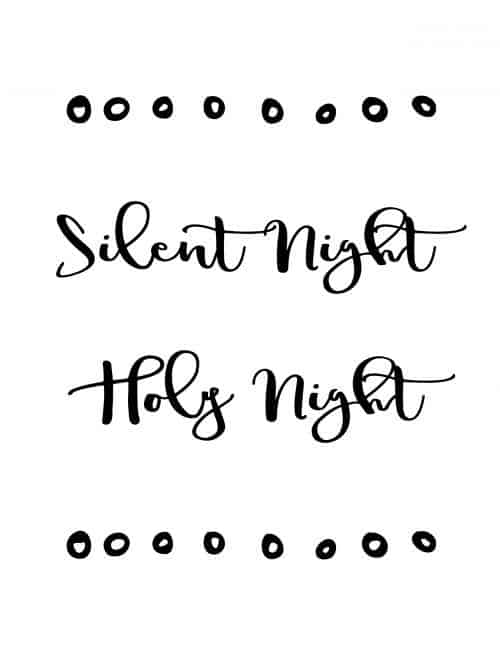 Silent Night
Holy Night